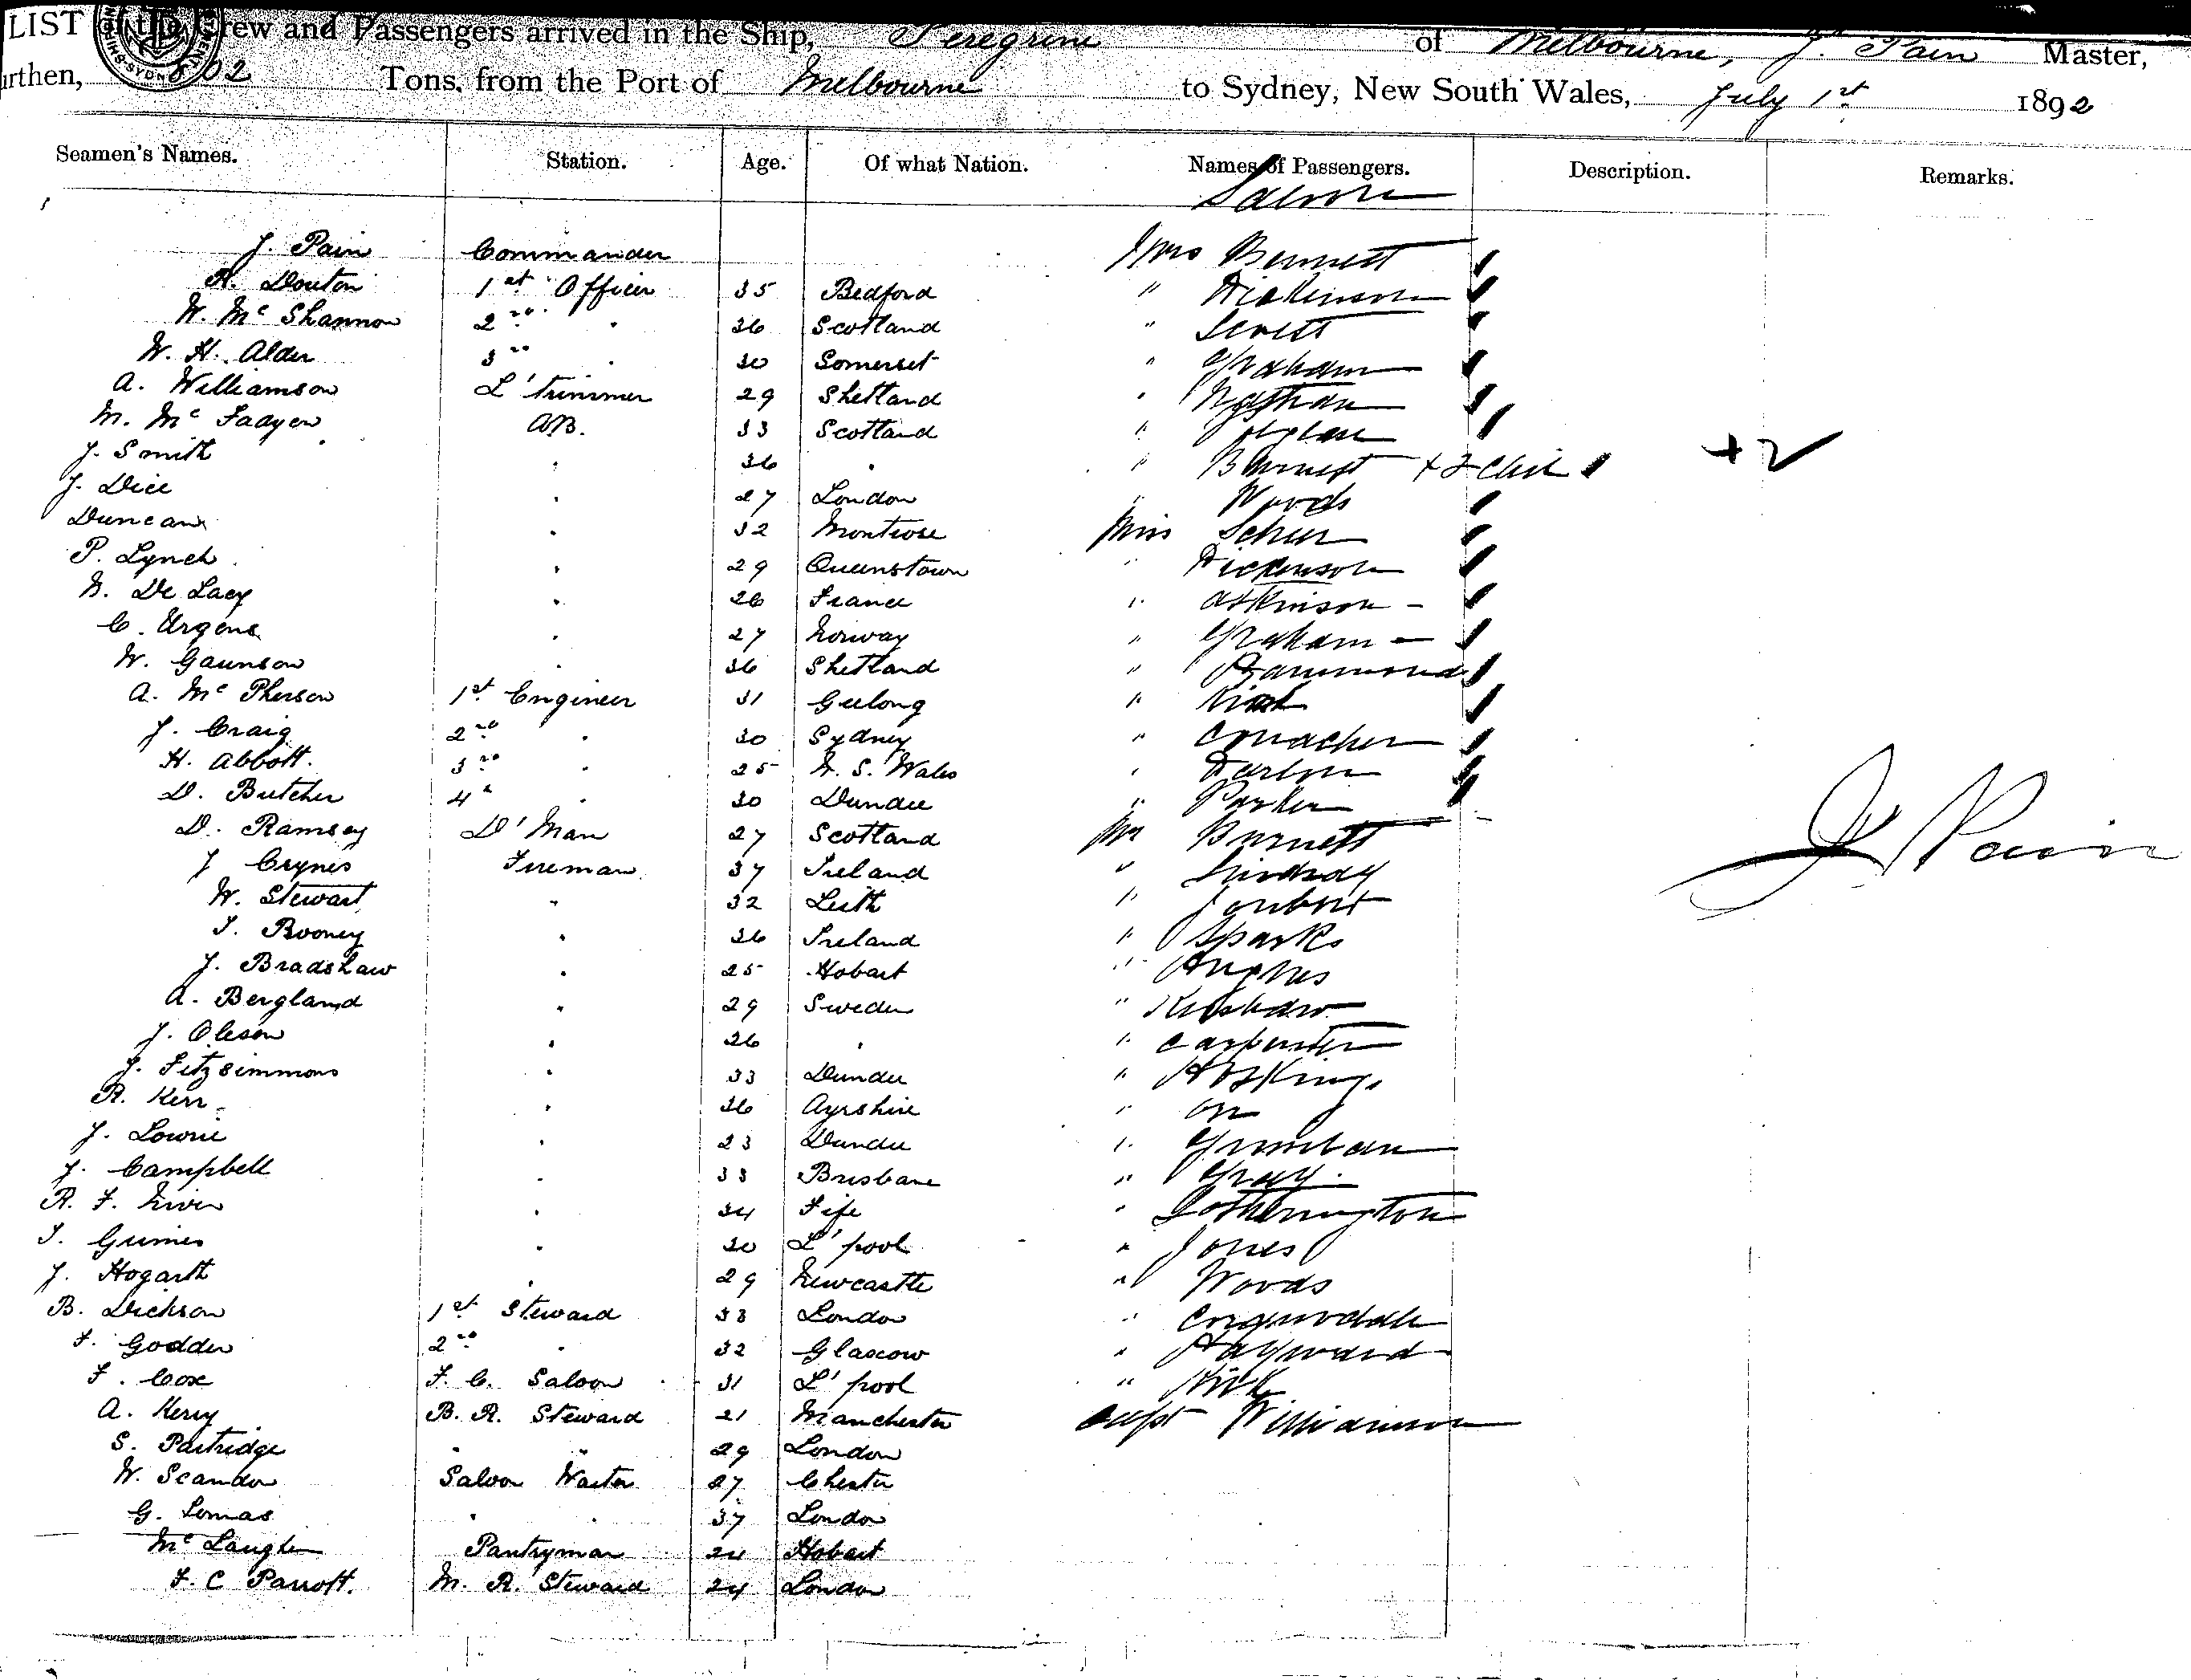 LIST of the Crew and Passengers arrived in the Ship, Peregrine of Melbourne, J. Pain Master,
urthen, 802 Tons, from the Port of Melbourne to Sydney, New South Wales, July 1st 1892
Seamen's Names. Station. Age. Of what Nation. Names of Passengers. Description. Remarks.
Saloon
J. Pain Commander Mrs Bennett
R. Douton 1st Officer 35 Bedford " Dickinson
W. Mc Shannon 2nd " 36 Scotland "
W. H. Alder 3rd " 30 Somerset " Graham
A. Williamson L'trimmer 29 Shetland " Nathan
M. Mc Fadyen A.B. 33 Scotland "
J. Smith " 36 " " Burnett + 2 Chil +2
J. Dice " 27 London " Woods
Duncan " 32 Montrose Miss
P. Lynch " 29 Queenstown " Dickenson
De Lacy " 26 France " Atkinson -
C. Urgens " 27 Norway " Graham -
W. Gaunson " 36 Shetland " Hammond
A. Mc Pherson 1st Engineer 31 Geelong " Kirk
J. Craig 2nd " 30 Sydney " Conacher
H. Abbott. 3rd " 25 N. S. Wales "
D. Butcher 4th " 30 Dundee " Parker
D. Ramsey D'Man 27 Scotland Mr Burnett
J Crynes Fireman 37 Ireland " Lindsay
W. Stewart " 32 Leith " Joubert
T. Rooney " 36 Ireland " Sparks
J. Bradshaw " 25 Hobart " Hughes
A. Bergland " 29 Sweden " Kershaw
J. Oleson " 26 " " Carpenter
J. Fitzsimmons " 33 Dundee " Hoskings
R. Kerr " 36 Ayrshire " Orr
J. Lowrie " 23 Dundee "
J. Campbell " 33 Brisbane " Gray.
R. F. Niven " 34 Fife " Lotherington
T. Grimes " 30 L'pool " Jones
J. Hogarth " 29 Newcastle " Woods
B. Dickson 1st Steward 33 London "
F. Godden 2nd " 32 Glascow " Hayward
F. Cox F. C. Saloon 31 L'pool " Kirk
A. Kerry B. R. Steward 21 Manchester Capt Williamson
S. Partridge " " 29 London
W. Scandon Saloon Waiter 27 Chester
G. Lomas " " 37 London
Mc Laughlin Pantryman 24 Hobart
F. C Parrott. M. R. Steward 24 London
J Pain